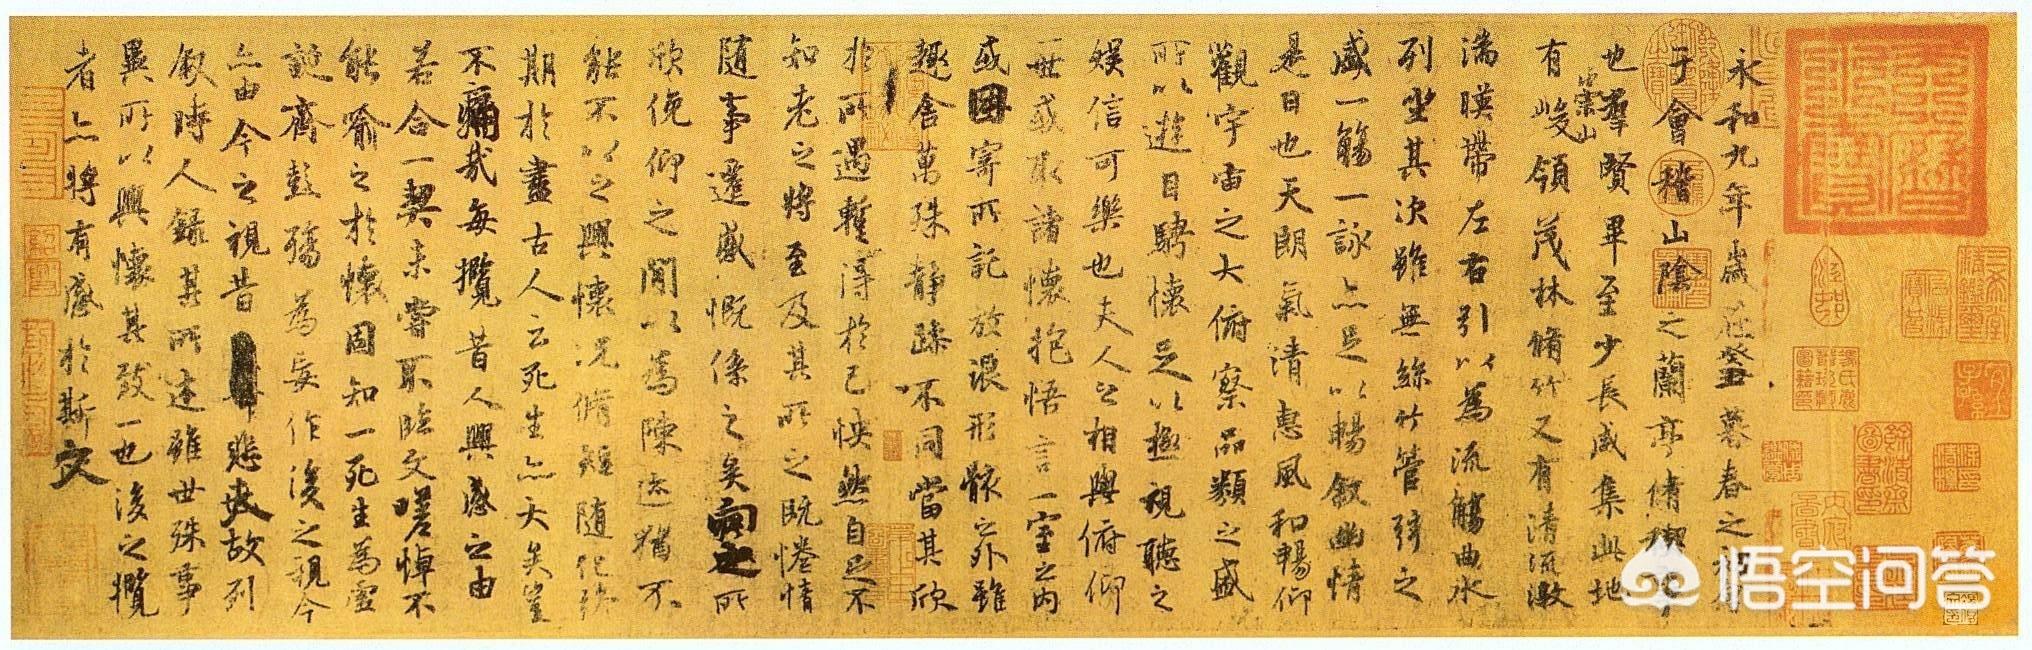 永和九年歲在癸丑暮春之初會
于會稽山陰之蘭亭脩禊事
也羣賢畢至少長咸集此地
有崇山峻領茂林脩竹又有清流激
湍暎帶左右引以為流觴曲水
列坐其次雖無絲竹管弦之
盛一觴一詠亦足以暢敘幽情
是日也天朗氣清惠風和暢仰
觀宇宙之大俯察品類之盛
所以遊目騁懷足以極視聽之
娛信可樂也夫人之相與俯仰
一世或取諸懷抱悟言一室之內
或因寄所託放浪形骸之外雖
趣舍萬殊靜躁不同當其欣
於所遇暫得於己怏然自足不
知老之將至及其所之既惓情
隨事遷感慨係之矣向之所
欣俛仰之閒以為陳迹猶不
能不以之興懷況脩短隨化終
期於盡古人云死生亦大矣豈
不痛哉每攬昔人興感之由
若合一契未嘗不臨文嗟悼不
能喻之於懷固知一死生為虛
誕齊彭殤為妄作後之視今
亦由今之視昔悲夫故列
敘時人錄其所述雖世殊事
異所以興懷其致一也後之攬
者亦將有感於斯文
悟空问答